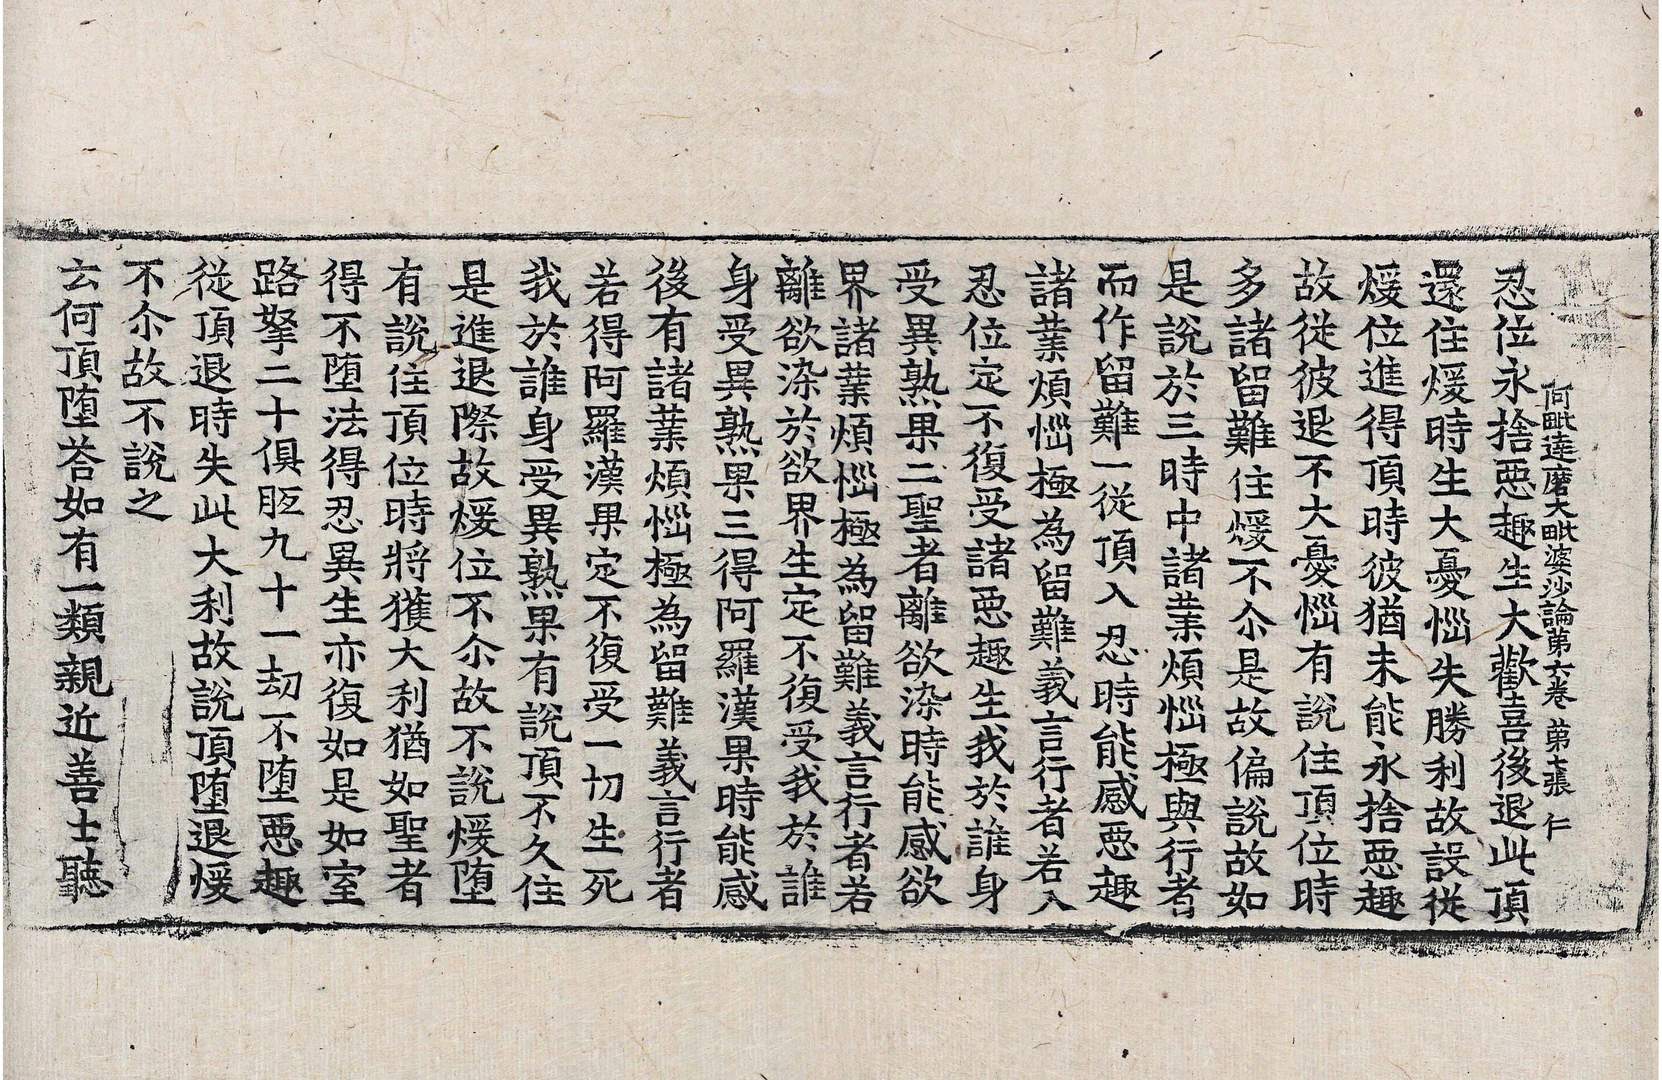 阿毗達磨大毗婆沙論第六卷 第七張 仁
忍位永捨惡趣生大歡喜後退此頂
還住煖時生大憂惱失勝利故設從
煖位進得頂時彼猶未能永捨惡趣
故從彼退不大憂惱有說住頂位時
多諸留難住煖不尒是故偏說故如
是說於三時中諸業煩惱極與行者
而作留難一從頂入忍時能感惡趣
諸業煩惱極為留難義言行者若入
忍位定不復受諸惡趣生我於誰身
受異熟果二聖者離欲染時能感欲
界諸業煩惱極為留難義言行者若
離欲染於欲界生定不復受我於誰
身受異熟果三得阿羅漢果時能感
後有諸業煩惱極為留難義言行者
若得阿羅漢果定不復受一切生死
我於誰身受異熟果有說頂不久住
是進退際故煖位不尒故不說煖墮
有說住頂位時將獲大利猶如聖者
得不墮法得忍異生亦復如是如室
路拏二十俱胝九十一劫不墮惡趣
從頂退時失此大利故說頂墮退煖
不尒故不說之
云何頂墮荅如有一類親近善士聽